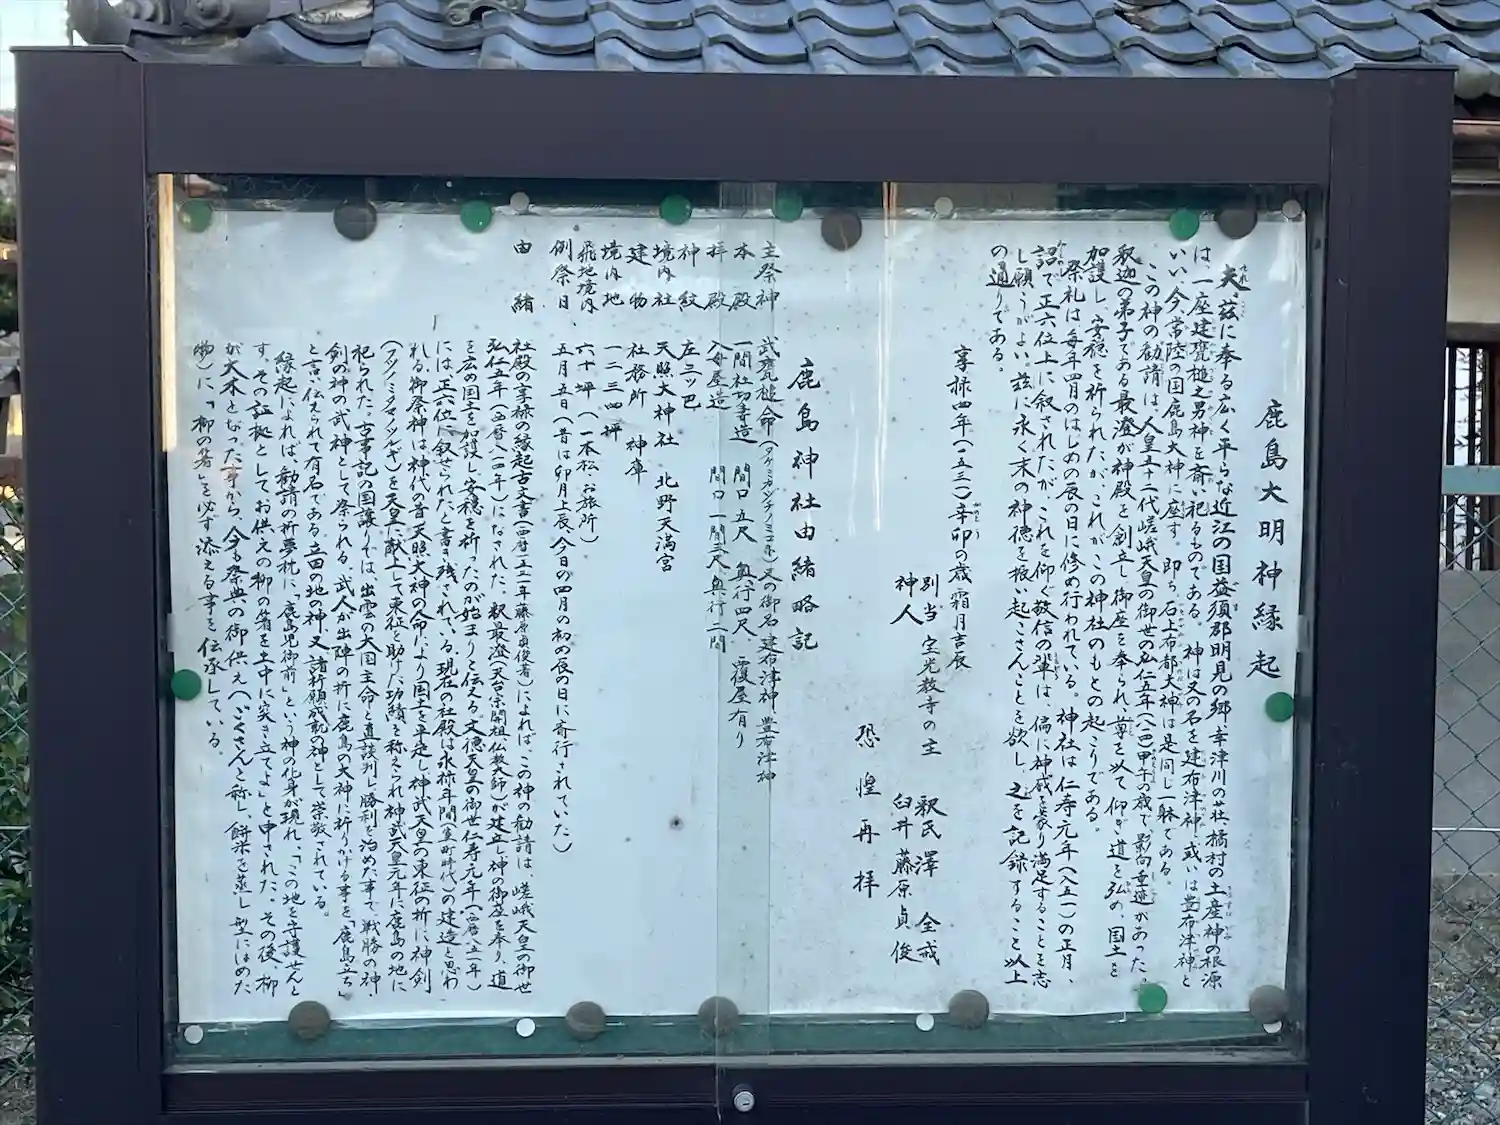 鹿島大明神縁起
夫、茲に奉る広く平らな近江の国益須郡明見の郷、幸津川の荘、橘村の土産神の根源
は一座建甕槌之男神を斎い祀るものである。神は又の名を建布津神、或いは豊布津神と
いい、今、常陸の国鹿島大神に座す。即ち石上布都大神は是同じ一躰である。
この神の勧請は、人皇五十二代嵯峨天皇の御世の弘仁五年(八一四)甲午の歳で、影向垂迹があった。
釈迦の弟子である最澄が神殿を創立し、御座を奉られ、尊を以て仰ぎ、道を弘め、国土を
加護し、安穏を祈られたが、これがこの神社のもとの起こりである。
祭礼は毎年四月のはじめの辰の日に修め行われている。神社は仁寿元年(八五一)の正月、
詔で正六位上に叙されたが、これを仰ぐ敬信の輩は、偏に神威を蒙り満足することを志
し願うがよい。茲に永く末の神徳を振い起こさんことを欲し、之を記録すること以上
の通りである。
享禄四年(一五三一)辛卯の歳霜月吉辰
別当 宝光教寺の主 釈氏澤 全戒
神人 臼井藤原貞俊
恐惶再拝
鹿島神社由緒略記
主祭神 武甕槌命(タケミカヅチノミコト)又の御名 建布津神、豊布津神
本殿 一間社切妻造 間口五尺 奥行四尺 覆屋有り
拝殿 入母屋造 間口一間三尺 奥行二間
神紋 左三ッ巴
境内社 天照大神社 北野天満宮
建物 社務所 神庫
境内地 一二三四坪
飛地境内 六十坪(一本松、お旅所)
例祭日 五月五日(昔は卯月上辰、今日の四月の初の辰の日に斎行されていた)
由緒 社殿の享禄の縁起古文書(西暦一五三一年藤原貞俊著)によれば、この神の勧請は、嵯峨天皇の御世
弘仁五年(西暦八一四年)になされた。釈最澄(天台宗開祖仏教大師)が建立し神の御座を奉り、道
を広め国土を加護し、安穏を祈ったのが始まりと伝える。文徳天皇の御世仁寿元年(西暦八五一年)
には、正六位に叙せられたと書き残されている。現在の社殿は永禄年間(室町時代)の建造と思わ
れる。御祭神は神代の昔天照大神の命により国土を平定し神武天皇の東征の折に神剣
(フツノミタマノツルギ)を天皇に献上して東征を助けた功績を称えられ神武天皇元年に鹿島の地に
祀られた。古事記の国譲りでは、出雲の大国主命と直談判し勝利を治めた事で、戦勝の神・
剣の神の武神として祭られる。武人が出陣の折に鹿島の大神に祈りかける事を「鹿島立ち」
と言い伝えられて有名である。立田の地の神、又、諸祈願成就の神として崇敬されている。
縁起によれば、勧請の折夢枕に、「鹿島児御前」という神の化身が現れ、「この地を守護せんと
す、その証拠としてお供えの柳の箸を土中に突き立てよ」と申された。その後、柳
が大木となった事から、今も祭典の御供え(ごくさんと称し、餅米を蒸し型にはめた
物)に、「柳の箸」を必ず添える事を伝承している。